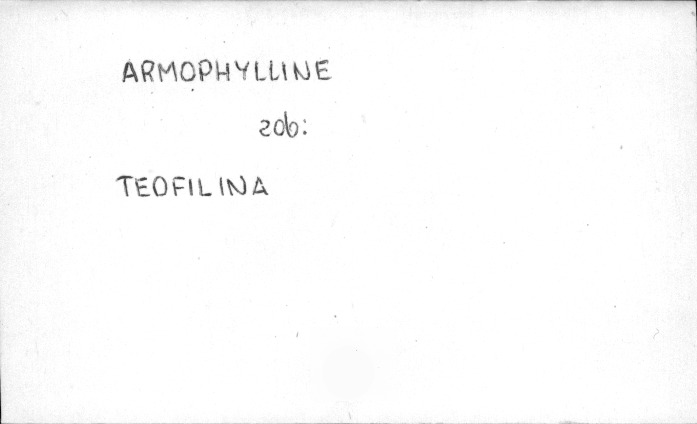 ARMOPHYLLINE
zob:
TEOFILINA